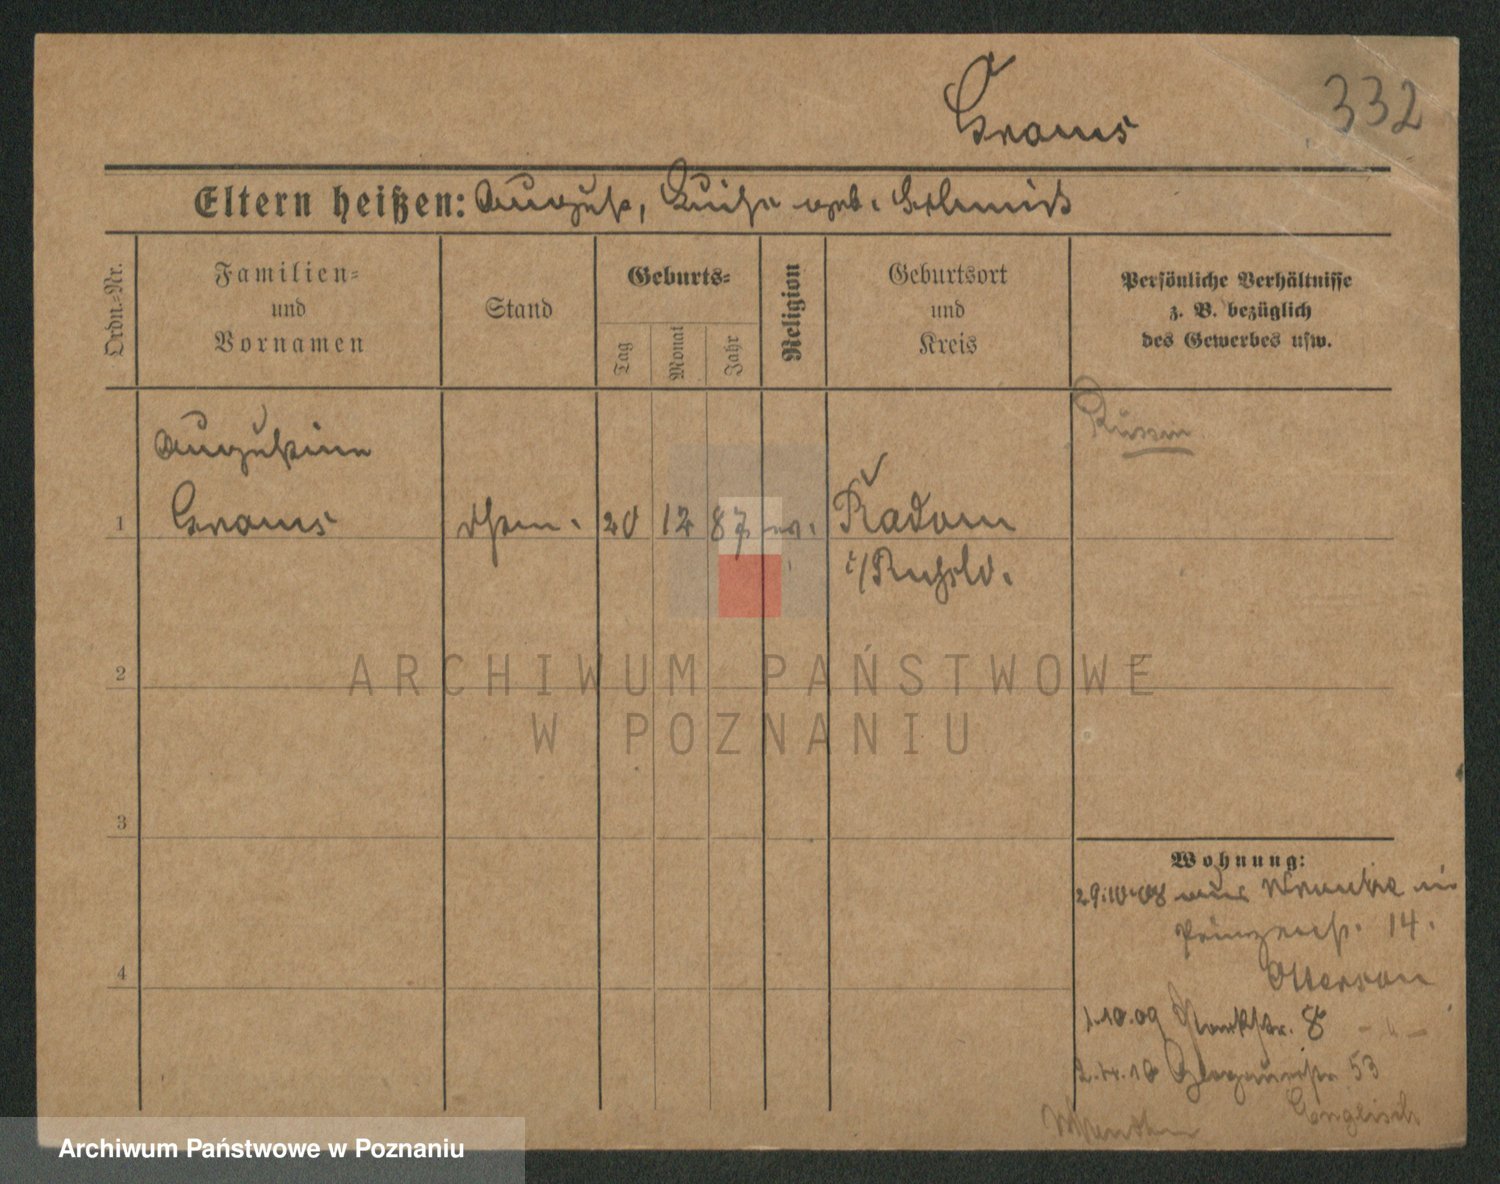 Grams
332
Eltern heißen: August, Luise geb. Schmidt
Ordn.=Nr.
Familien=
und
Vornamen
Stand
Geburts=
Tag
Monat
Jahr
Religion
Geburtsort
und
Kreis
Persönliche Verhältnisse
z. B. bezüglich
des Gewerbes usw.
Augustine
Russin
1
Grams
20
12
87
ev.
Radom
i/Rußld.
2
3
4
Wohnung:
29.10.08 aus Wronke in
Prinzenst. 14.
1.10.09 Parkstr. 8 - " -
10 Glogauerstr 53
ARCHIWUM PAŃSTWOWE
W POZNANIU
Archiwum Państwowe w Poznaniu